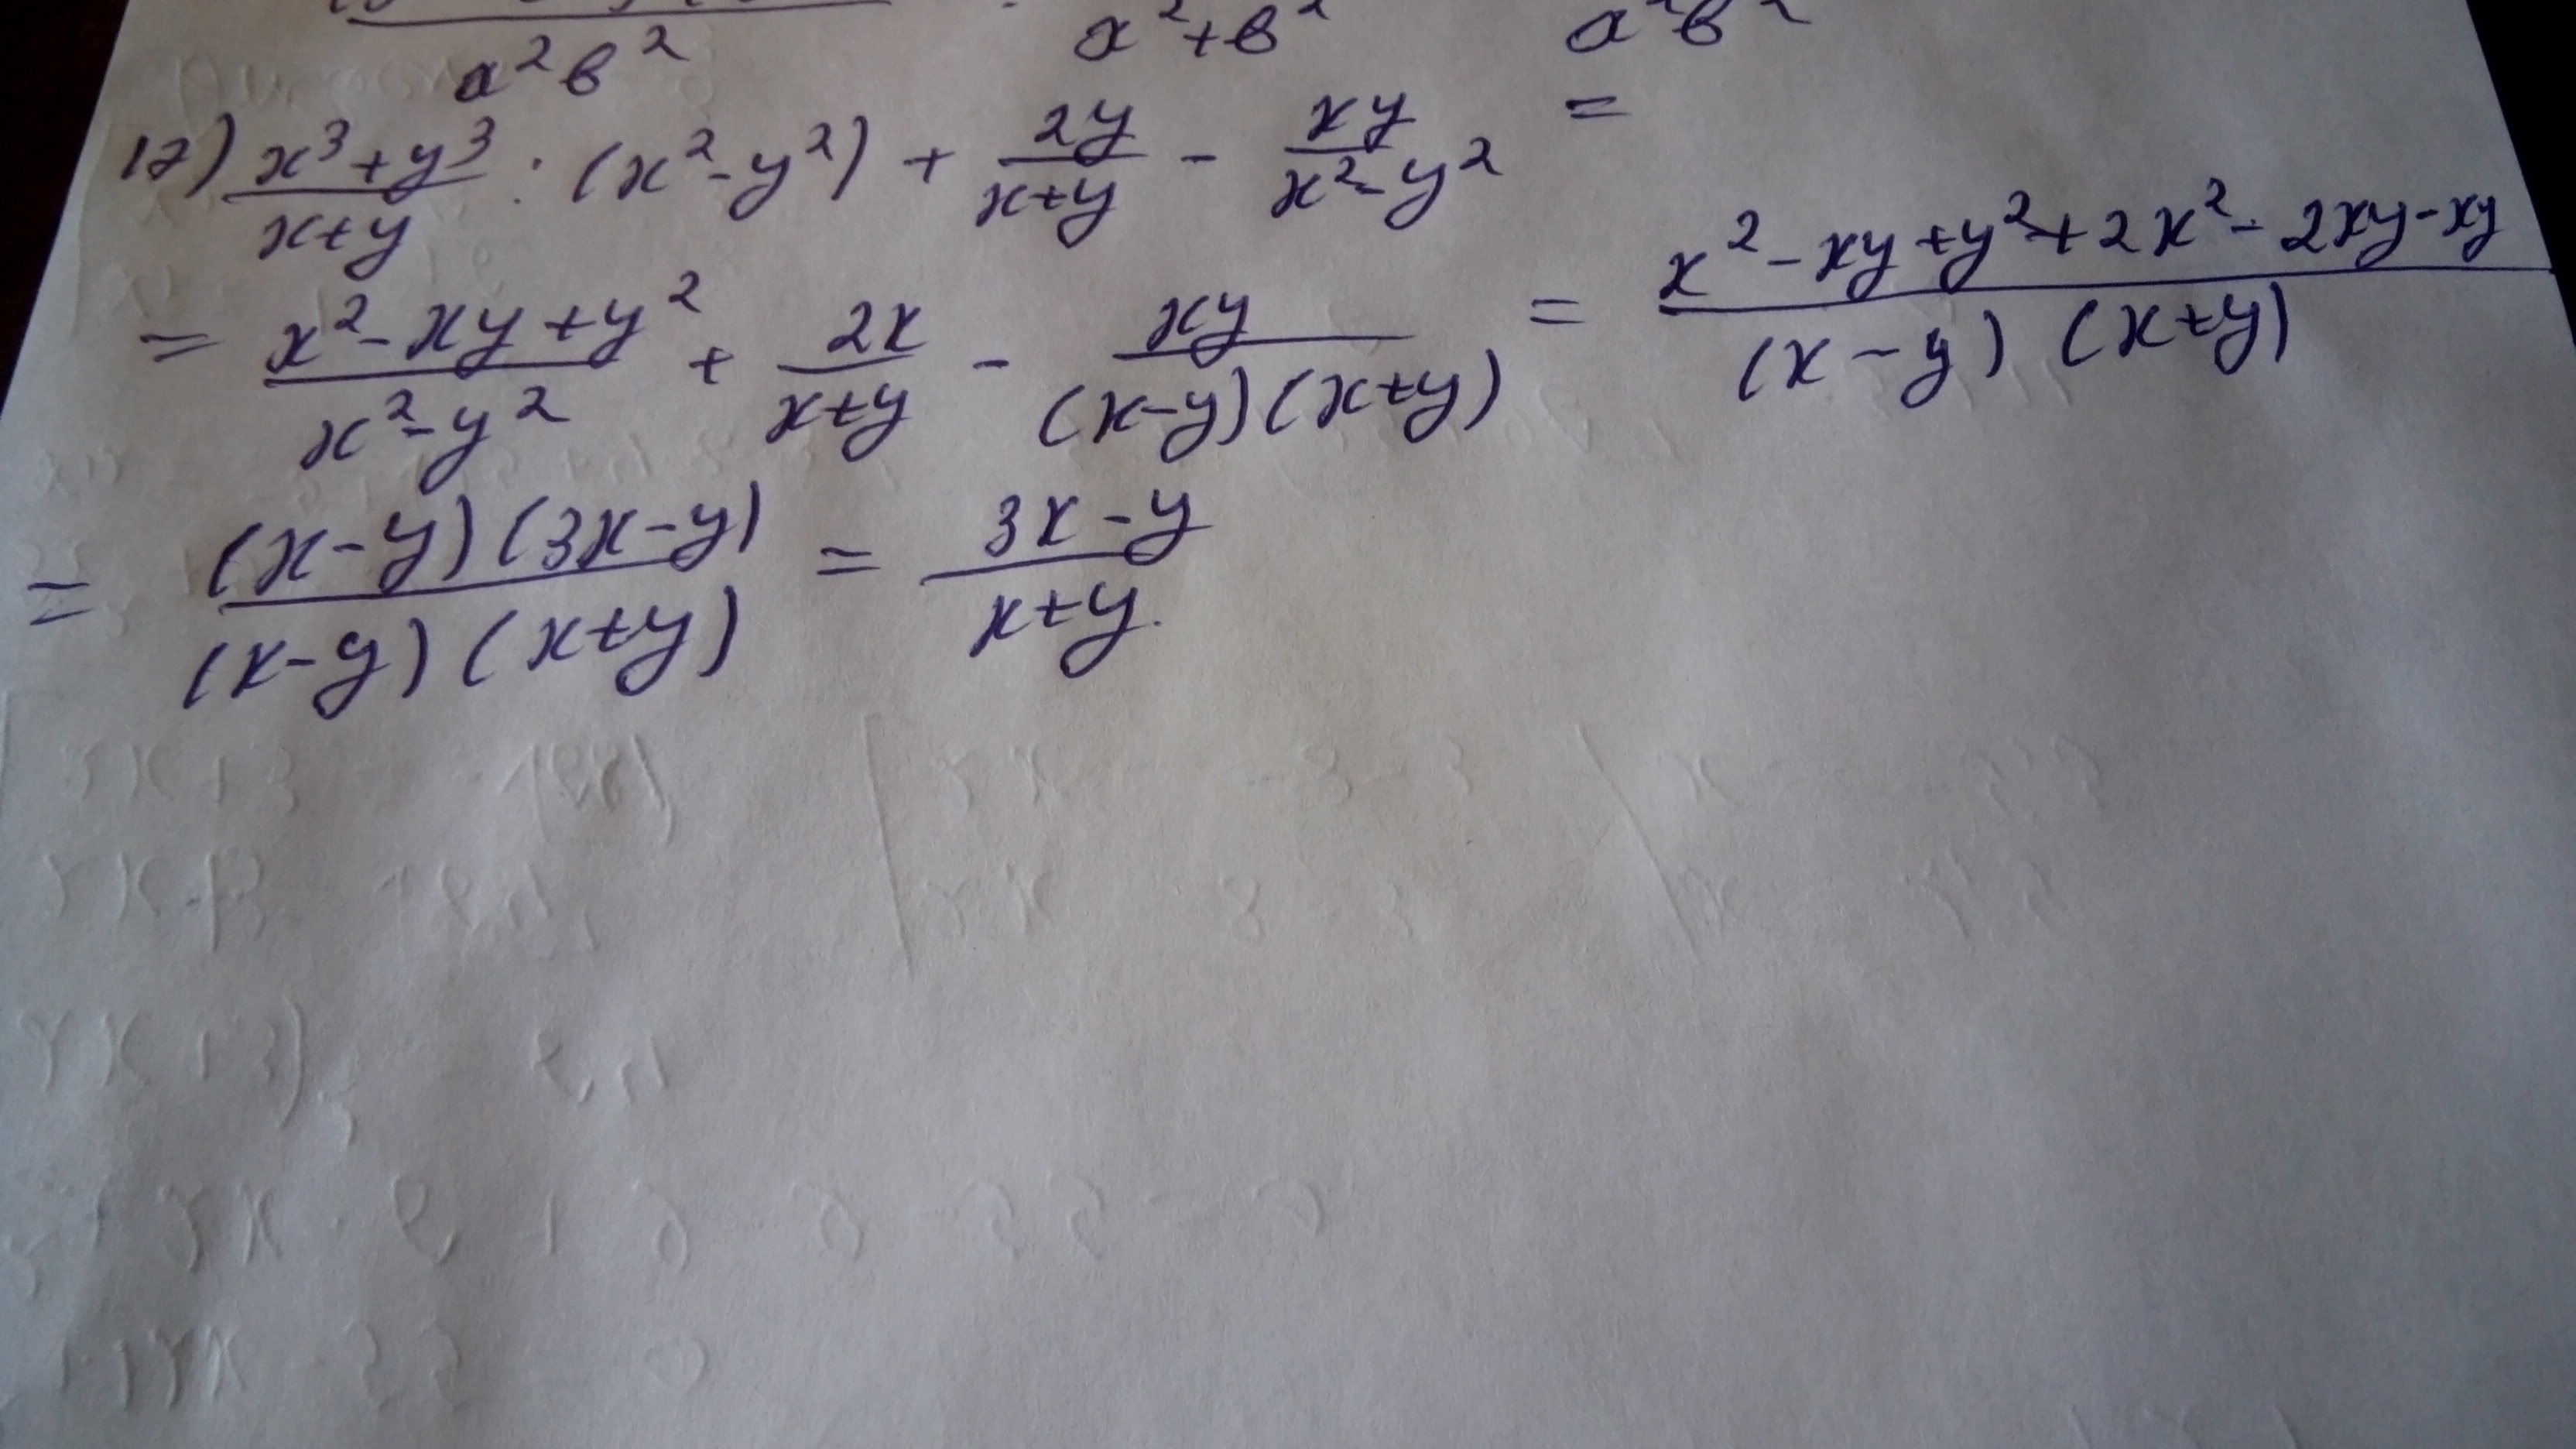 a²в² a²+в² a²в²
12) (x³+y³)/(x+y) : (x²-y²) + 2y/(x+y) - xy/(x²-y²) =
= (x²-xy+y²)/(x²-y²) + 2x/(x+y) - xy/((x-y)(x+y)) = (x²-xy+y²+2x²-2xy-xy)/((x-y)(x+y))
= ((x-y)(3x-y))/((x-y)(x+y)) = (3x-y)/(x+y).